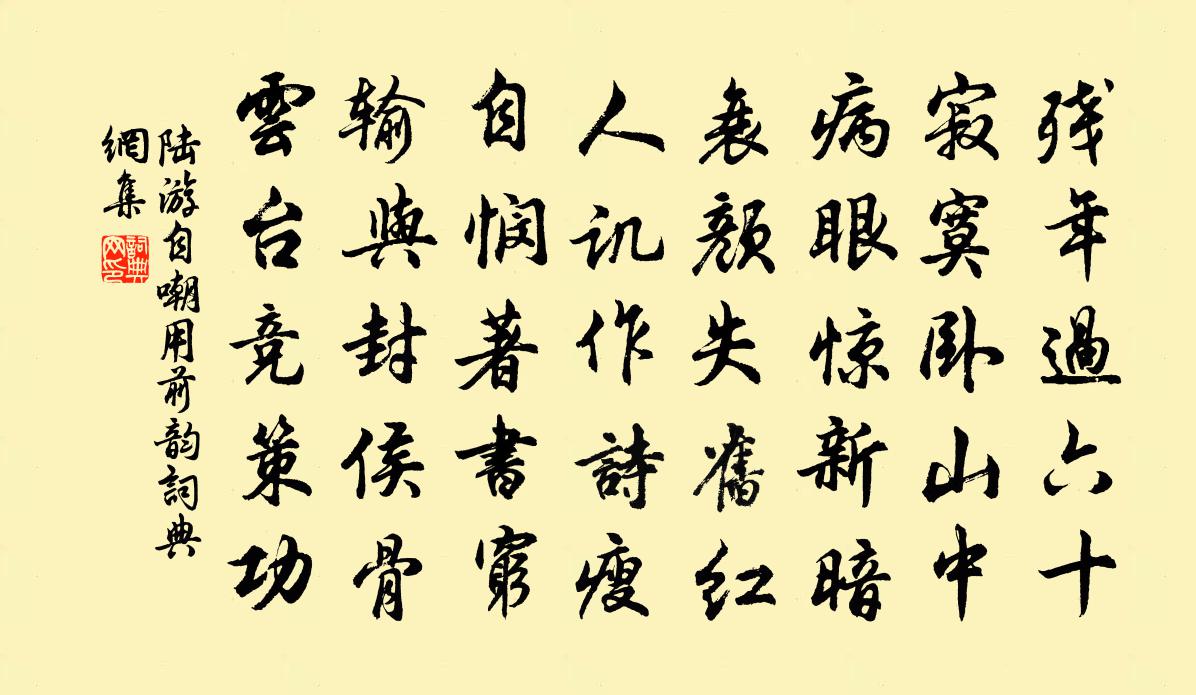 残年過六十
寂寞卧山中
病眼惊新暗
衰颜失舊红
人讥作詩瘦
自悯著書窮
输與封侯骨
雲台竞策功
陆游自嘲用前韵詞典
網集
詞典
网印